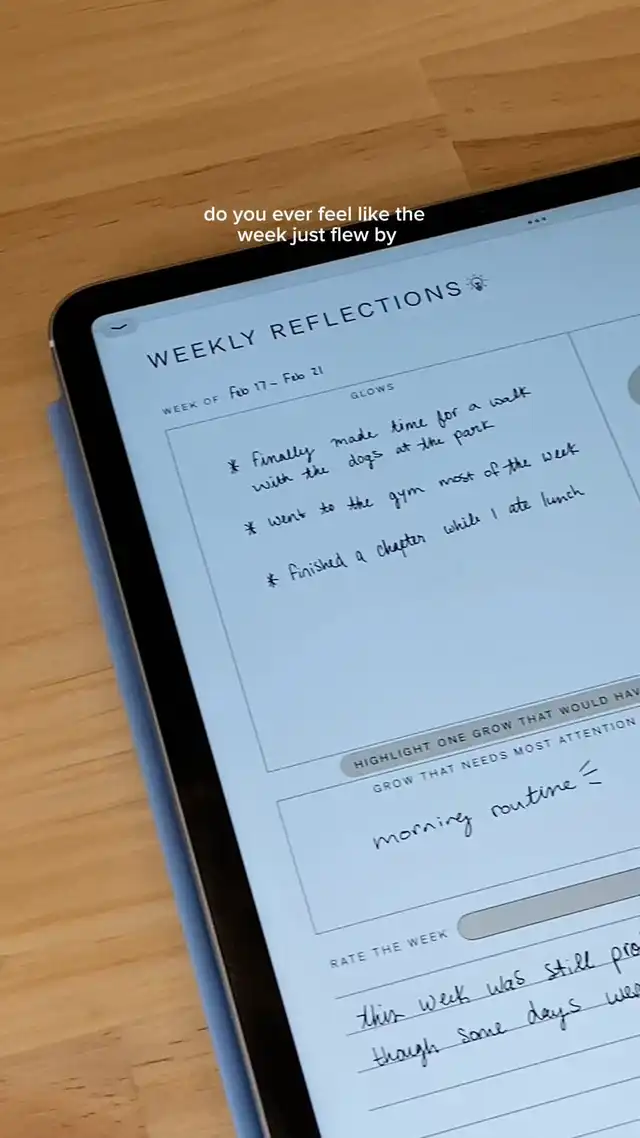 do you ever feel like the
week just flew by
WEEKLY REFLECTIONS
WEEK OF Feb 17 - Feb 21
GLOWS
* Finally made time for a walk
with the dogs at the park
* went to the gym most of the week
* Finished a chapter while I ate lunch
HIGHLIGHT ONE GROW THAT WOULD HAV
GROW THAT NEEDS MOST ATTENTION
morning routine
RATE THE WEEK
this week was still pro
though some days we